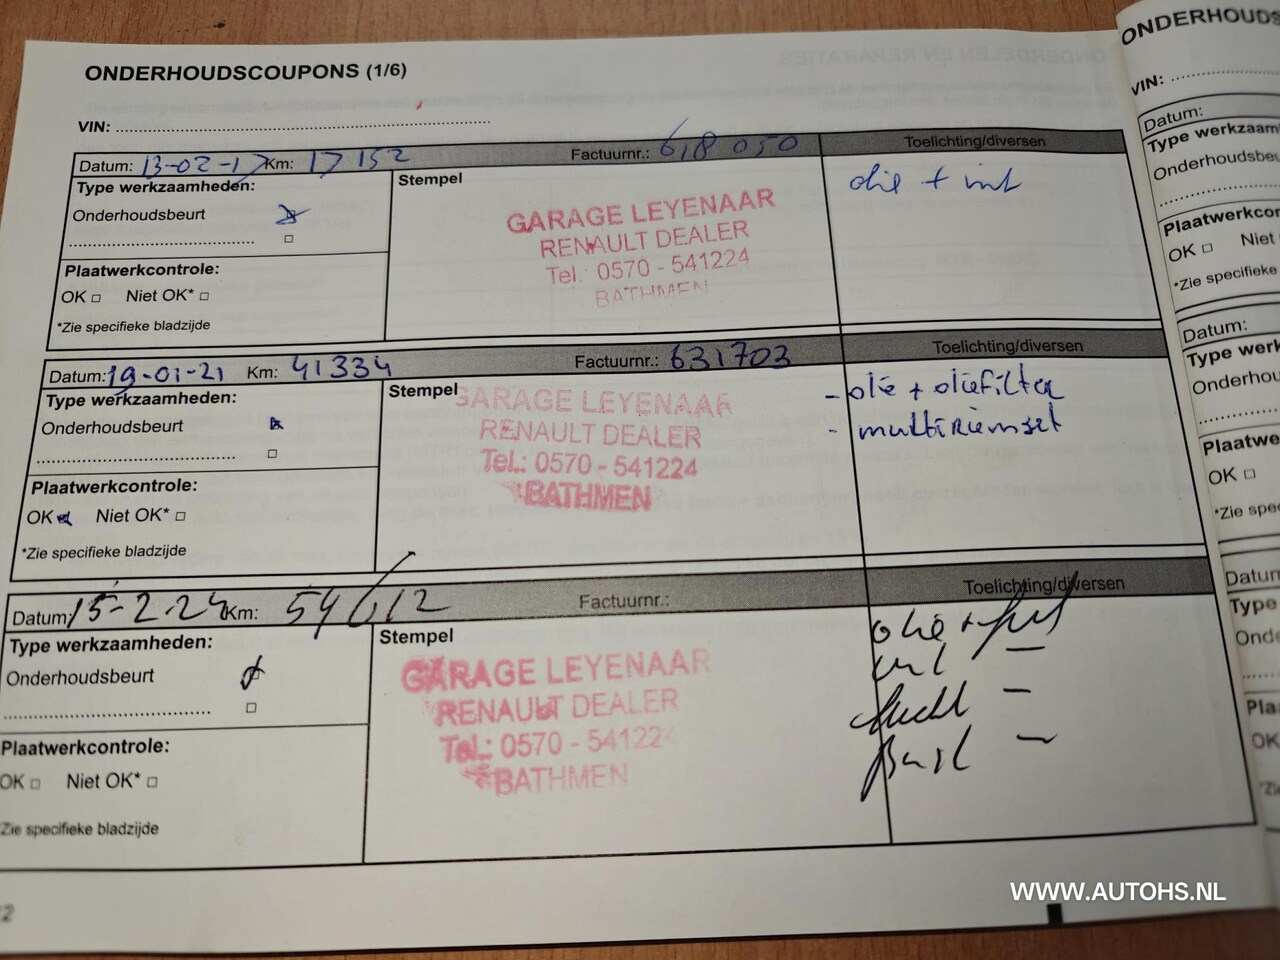 ONDERHOUDSCOUPONS (1/6)
VIN:
Datum: 13-02-17 Km: 17152 Factuurnr.: 618050 Toelichting/diversen
Type werkzaamheden:
Onderhoudsbeurt
Plaatwerkcontrole:
OK □ Niet OK* □
*Zie specifieke bladzijde
Stempel
GARAGE LEYENAAR
RENAULT DEALER
Tel.: 0570 - 541224
BATHMEN
olie + int
Datum: 19-01-21 Km: 41334 Factuurnr.: 631703 Toelichting/diversen
Type werkzaamheden:
Onderhoudsbeurt
Plaatwerkcontrole:
OK Niet OK* □
*Zie specifieke bladzijde
Stempel
GARAGE LEYENAAR
RENAULT DEALER
Tel.: 0570 - 541224
BATHMEN
- olie + oliefilter
- multiriemset
Datum: 15-2-24 Km: 54612 Factuurnr.: Toelichting/diversen
Type werkzaamheden:
Onderhoudsbeurt
Plaatwerkcontrole:
OK □ Niet OK* □
*Zie specifieke bladzijde
Stempel
GARAGE LEYENAAR
RENAULT DEALER
Tel.: 0570 - 541224
BATHMEN
olie +
2
ONDERHOUDS
VIN:
Datum:
Type werkzaam
Onderhoudsbeu
Plaatwerkcor
OK □ Niet
*Zie specifieke
Datum:
Type werk
Onderhou
Plaatwe
OK □
*Zie spe
Datun
Type
Onde
Plaa
OK
WWW.AUTOHS.NL